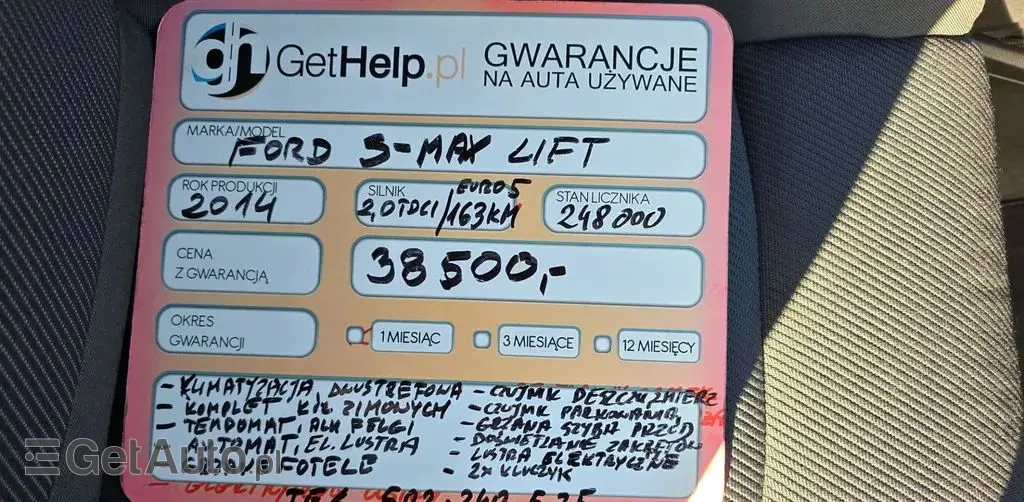 dh GetHelp.pl GWARANCJE
NA AUTA UŻYWANE
MARKA/MODEL
FORD S-MAX LIFT
ROK PRODUKCJI
2014
SILNIK
EURO 5
2,0TDCI/163KM
STAN LICZNIKA
248000
CENA
Z GWARANCJĄ
38500,-
OKRES
GWARANCJI
1 MIESIĄC
3 MIESIĄCE
12 MIESIĘCY
- KLIMATYZACJA DWUSTREFOWA
- KOMPLET KÓŁ ZIMOWYCH
- TEMPOMAT, ALU FELGI
AUTOMAT, EL. LUSTRA
FOTELE
- CZUJNIK DESZCZU, ZMIERZ
- CZUJNIK PARKOWANIA,
- GRZANA SZYBA PRZÓD
- DOŚWIETLANIE ZAKRĘTÓW
- LUSTRA ELEKTRYCZNE
- 2x KLUCZYK
GetAuto.pl